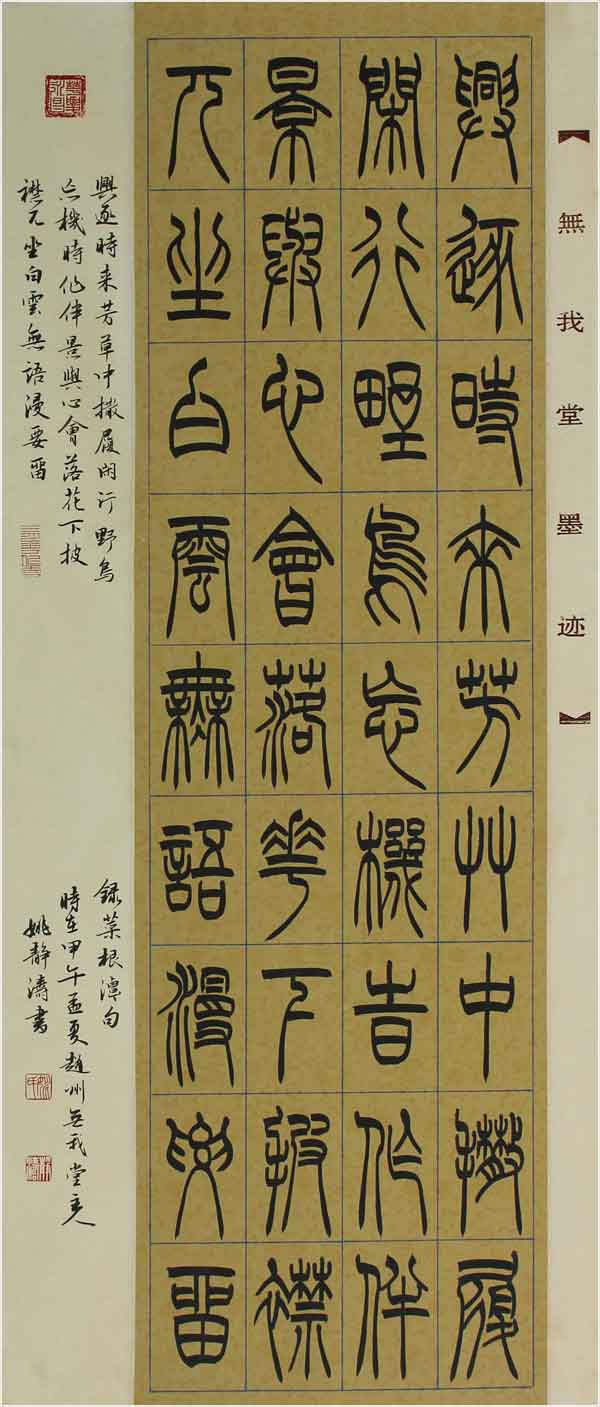 【無我堂墨迹】
興逐時來芳艸中撤履
閑行野鳥忘機旹作伴
景與心會落花下披襟
兀坐白雲無語漫要留
興逐時来芳草中撤履閑行野鳥
忘機時作伴景與心會落花下披
襟兀坐白雲無語漫要留
録菜根潭句
時在甲午孟夏趙州无我堂主人
姚靜濤書